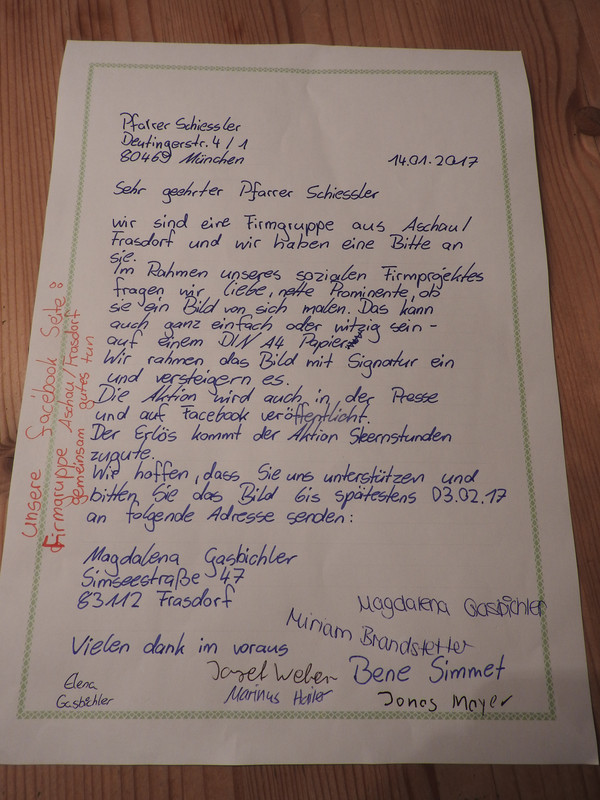 Pfarrer Schiessler
Deutingerstr. 4/1
80469 München
14.01.2017
Sehr geehrter Pfarrer Schiessler
wir sind eine Firmgruppe aus Aschau/
Frasdorf und wir haben eine Bitte an
sie.
Im Rahmen unseres sozialen Firmprojektes
fragen wir liebe, nette Prominente, ob
sie ein Bild von sich malen. Das kann
auch ganz einfach oder witzig sein -
auf einem DIN A4 Papier
Wir rahmen das Bild mit Signatur ein
und versteigern es.
Die Aktion wird auch in der Presse
und auf Facebook veröffentlicht.
Der Erlös kommt der Aktion Sternstunden
zugute.
Wir hoffen, dass Sie uns unterstützen und
bitten Sie das Bild bis spätestens 03.02.17
an folgende Adresse senden:
Magdalena Gasbichler
Simseestraße 47
83112 Frasdorf
Vielen dank im voraus
Magdalena Gasbichler
Miriam Brandstetter
Josef Weber
Bene Simmet
Elena
Gasbichler
Marinus Hailer
Jonas Mayer
Unsere Facebook Seite:
Firmgruppe Aschau/Frasdorf
gemeinsam gutes tun